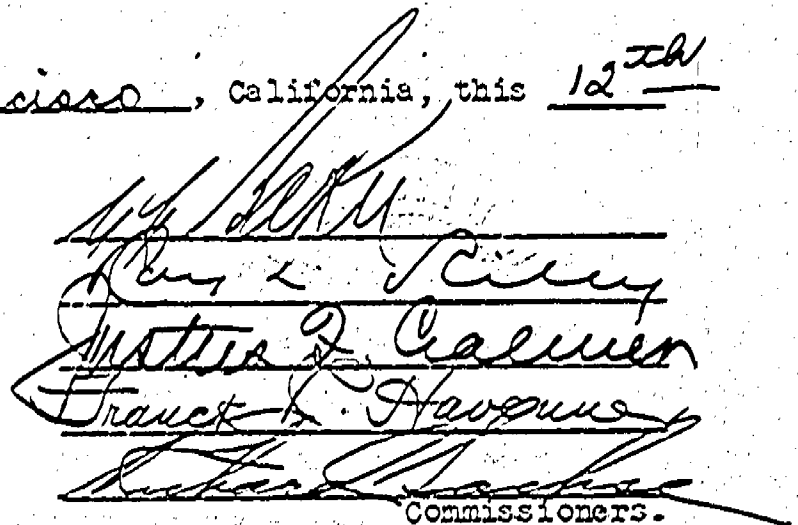 cisco, California, this 12th
Ray L. Riley
Justus F. Craemer
Franck R. Havenner
Richard Sachse
Commissioners.